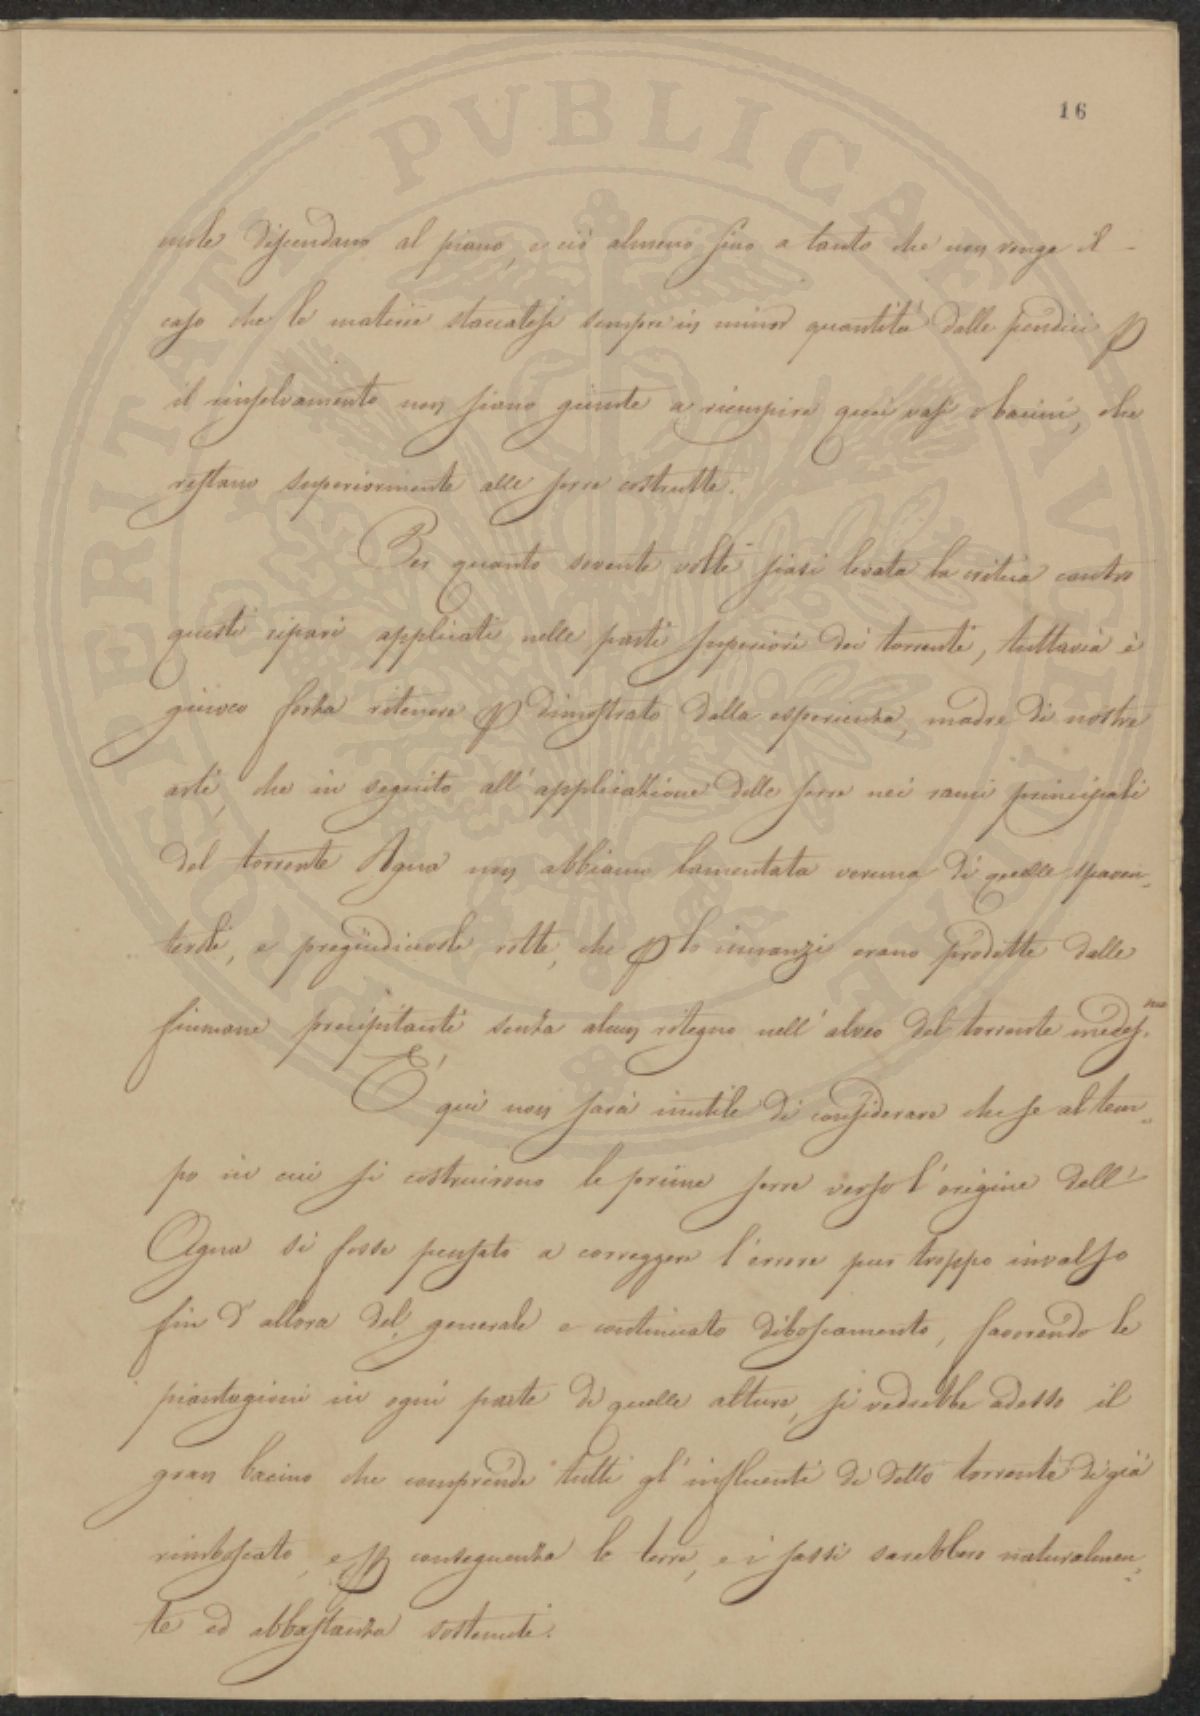 16
mole discendano al piano, e ciò almeno sino a tanto che non venga il
caso che le materie staccatesi sempre in minor quantità dalle pendici p
il rinselvamento non siano giunte a riempire quei vasi o bacini, che
restano superiormente alle serre costrutte.
Per quanto sovente volte siasi levata la critica contro
questi ripari applicati nelle parti superiori dei torrenti, tuttavia è
giuoco forza ritenere p dimostrato dalla esperienza, madre di nostre
arti, che in seguito all'applicazione delle serre nei rami principali
del torrente Agna non abbiamo lamentata veruna di quelle spaven-
tevoli, e pregiudicevole rotte, che p lo innanzi erano prodotte dalle
fiumane precipitanti senza alcun ritegno nell'alveo del torrente medes.mo
E qui non sarà inutile di considerare che se al tem-
po in cui si costruirono le prime serre verso l'origine dell'
Agna si fosse pensato a correggere l'errore pur troppo invalso
fin d'allora del generale e continuato diboscamento, favorendo le
piantagioni in ogni parte di quelle alture, si vedrebbe adesso il
gran bacino che comprende tutti gl'influenti di detto torrente di già
rimboscato, e p conseguenza le terre, e i sassi sarebbero naturalmen-
te ed abbastanza sostenuti.
POSTERITATI PVBLICAE